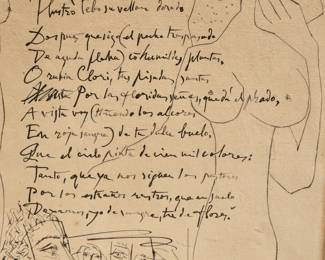 Ilustró Febo su vellon dorado
Despues que sigo (el pecho traspasado
De aguda flecha) con humildes plantas,
O rubia Clori, tus pisadas santas
Por las floridas señas que da el prado,
A vista voy (tiñendo los alcores
En roja sangre) de tu dulce buelo,
Que el cielo pinta de cien mil colores:
Tanto, que ya nos siguen los pastores
Por los estraños rastros, que en el suelo
Dexamos, yo de sangre, tu de flores.